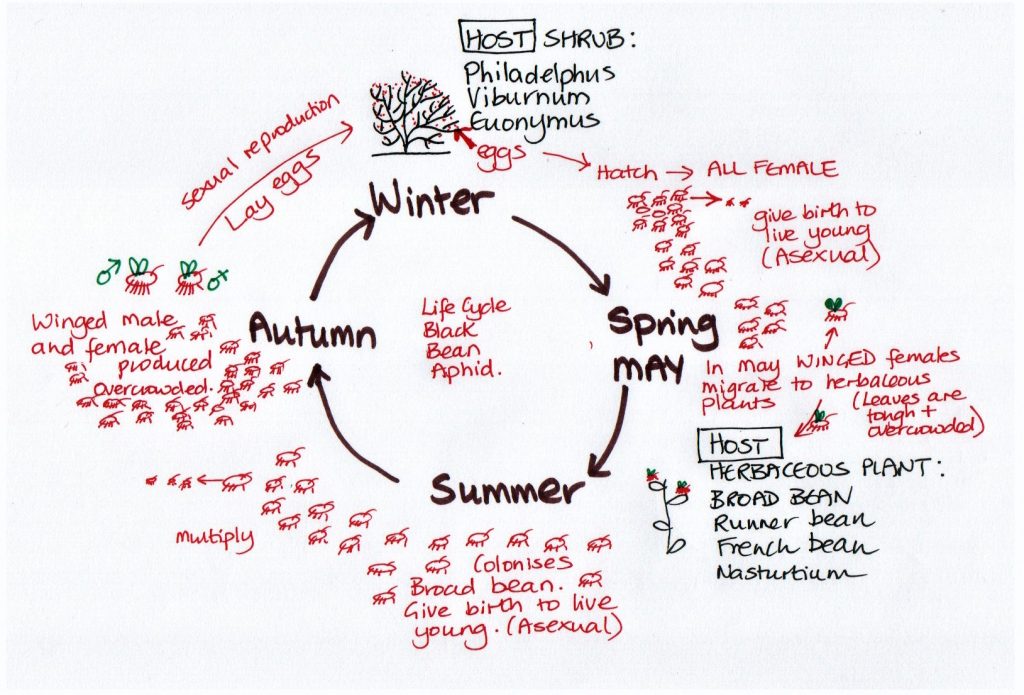 HOST SHRUB:
Philadelphus
Viburnum
Euonymus
eggs
Hatch → ALL FEMALE
give birth to
live young
(Asexual)
sexual reproduction
Lay eggs
Winter
♂
♀
Winged male
and female
produced
overcrowded.
Autumn
Life Cycle
Black
Bean
Aphid.
Spring
MAY
In may WINGED females
migrate to herbaceous
plants
(Leaves are
tough +
overcrowded)
HOST
HERBACEOUS PLANT:
BROAD BEAN
Runner bean
French bean
Nasturtium
Summer
multiply
Colonises
Broad bean.
Give birth to live
young. (Asexual)